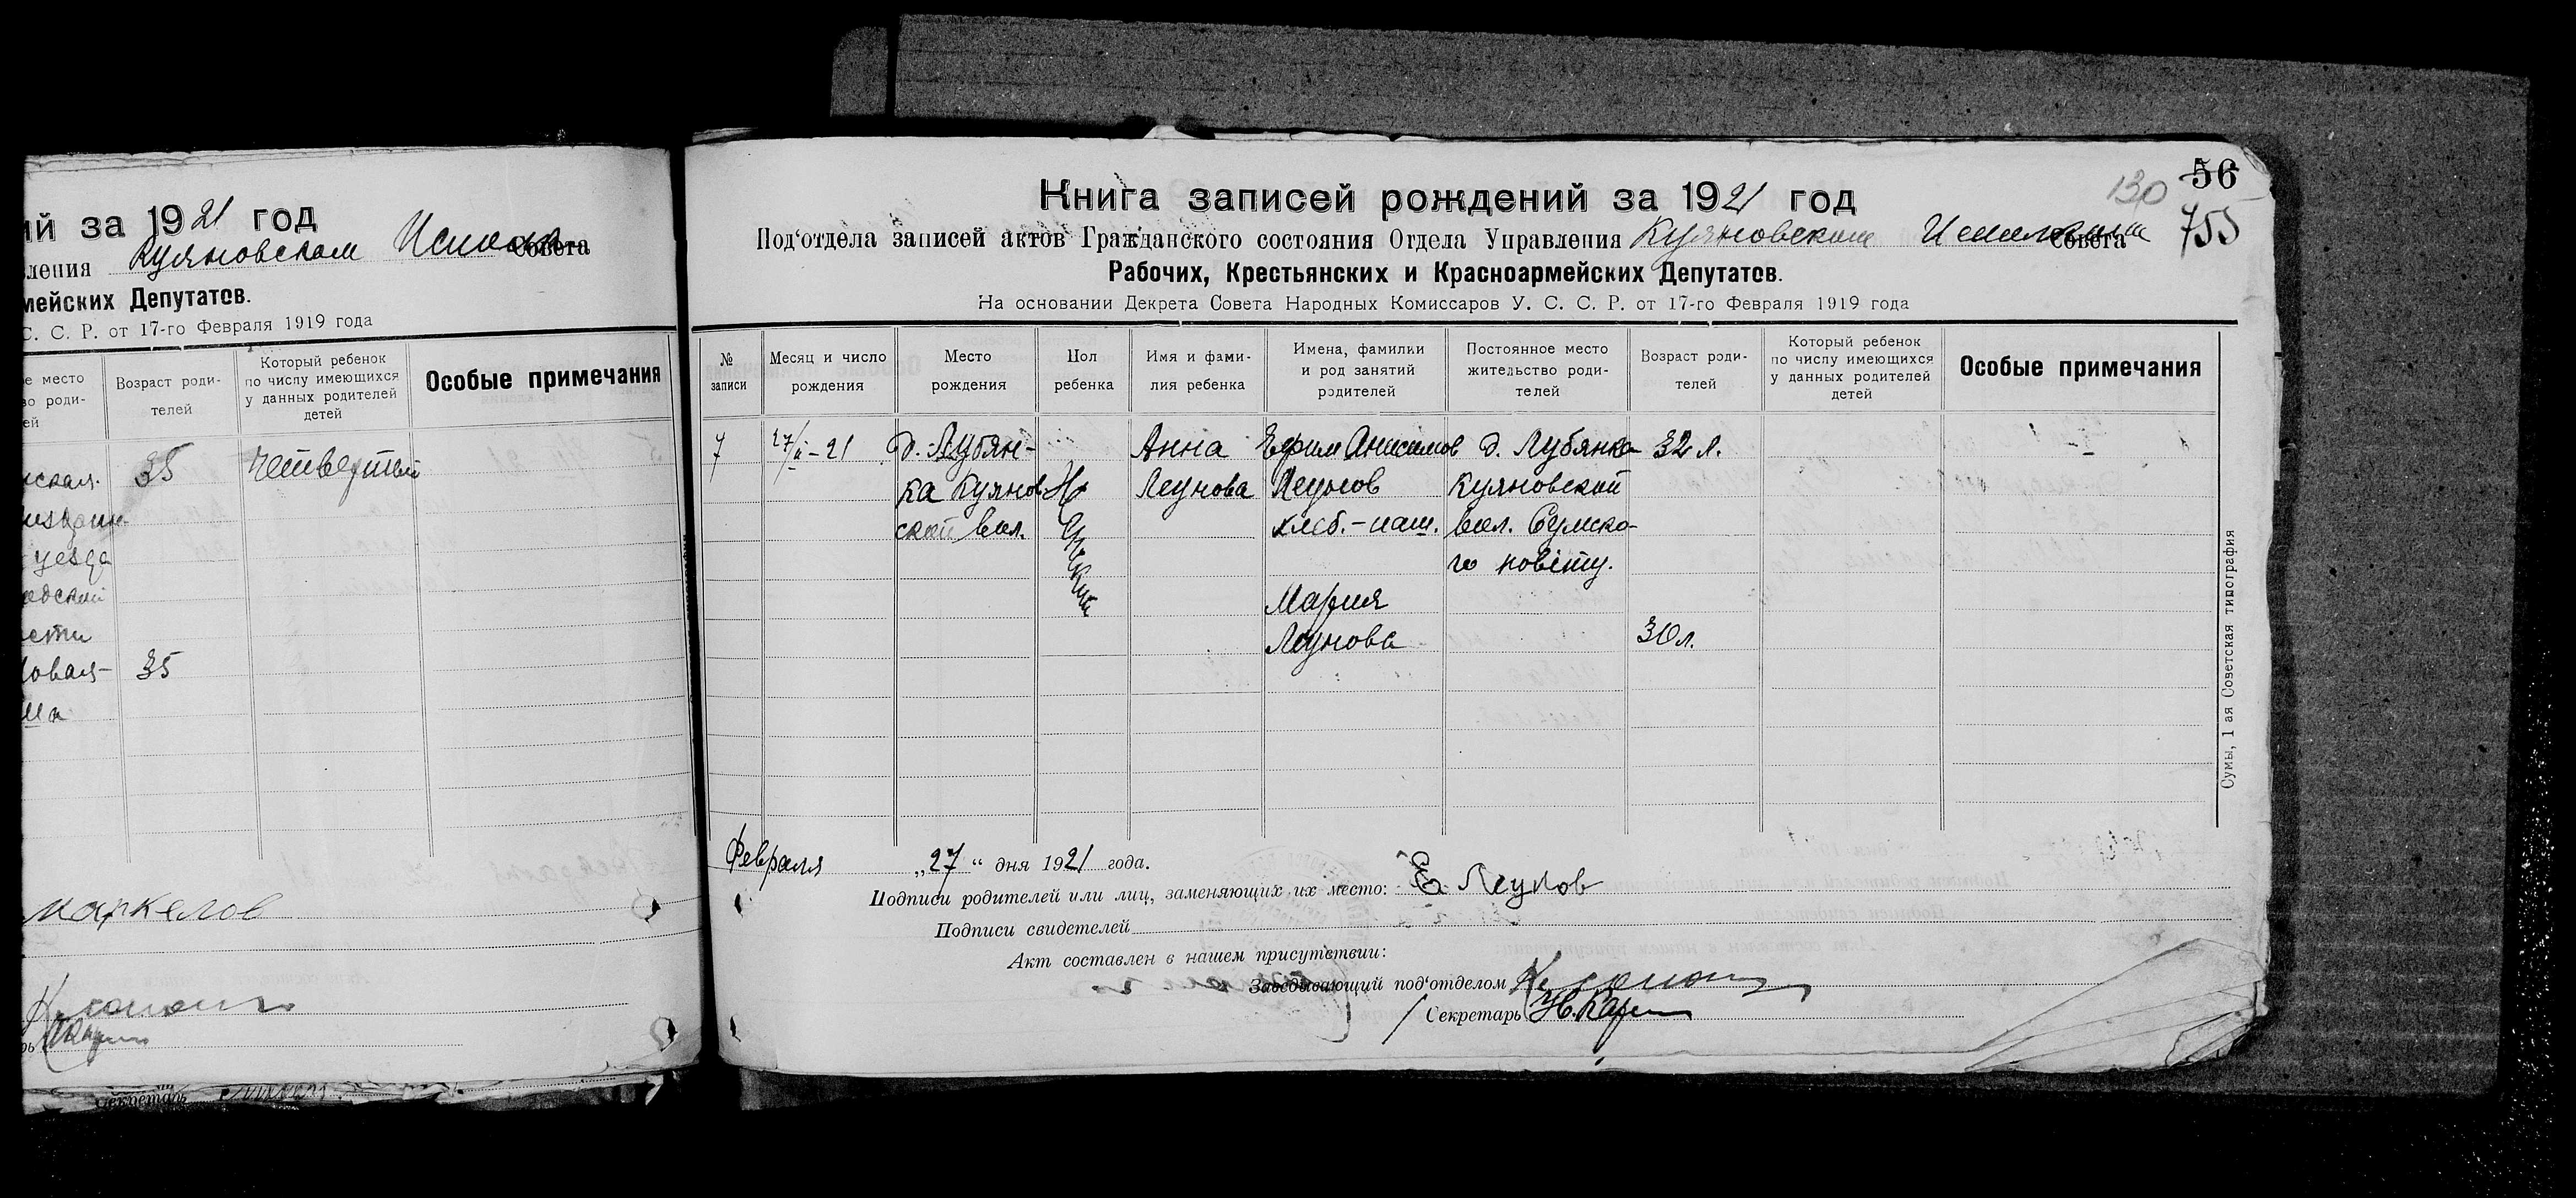 ий за 1921 год
ления Куяновском Совета
мейских Депутатов.
С. С. Р. от 17-го Февраля 1919 года
е место
во роди-
ей
Возраст роди-
телей
Который ребенок
по числу имеющихся
у данных родителей
детей
Особые примечания
35
четвертый
уезда
35
Маркелов
Секретарь
56
130
755
Книга записей рождений за 1921 год
Под‘отдела записей актов Гражданского состояния Отдела Управления Куяновском Исполкоми Совета
Рабочих, Крестьянских и Красноармейских Депутатов.
На основании Декрета Совета Народных Комиссаров У. С. С. Р. от 17-го Февраля 1919 года
№
записи
Месяц и число
рождения
Место
рождения
Пол
ребенка
Имя и фами-
лия ребенка
Имена, фамилии
и род занятий
родителей
Постоянное место
жительство роди-
телей
Возраст роди-
телей
Который ребенок
по числу имеющихся
у данных родителей
детей
Особые примечания
7
27/II-21
д. Лубян-
ка Куянов
ской вол.
Женский
Анна
Леунова
Ефим Анисимов
Леунов
хлеб.-паш.
Мария
Леунова
д. Лубянка
Куяновской
вол. Сумско-
го повіту.
32 л.
30 л.
Сумы, 1 ая Советская типография
Февраля „27“ дня 1921 года.
Подписи родителей или лиц, заменяющих их место: Е Леунов
Подписи свидетелей
Акт составлен в нашем присутствии:
Заведывающий под‘отделом
Секретарь